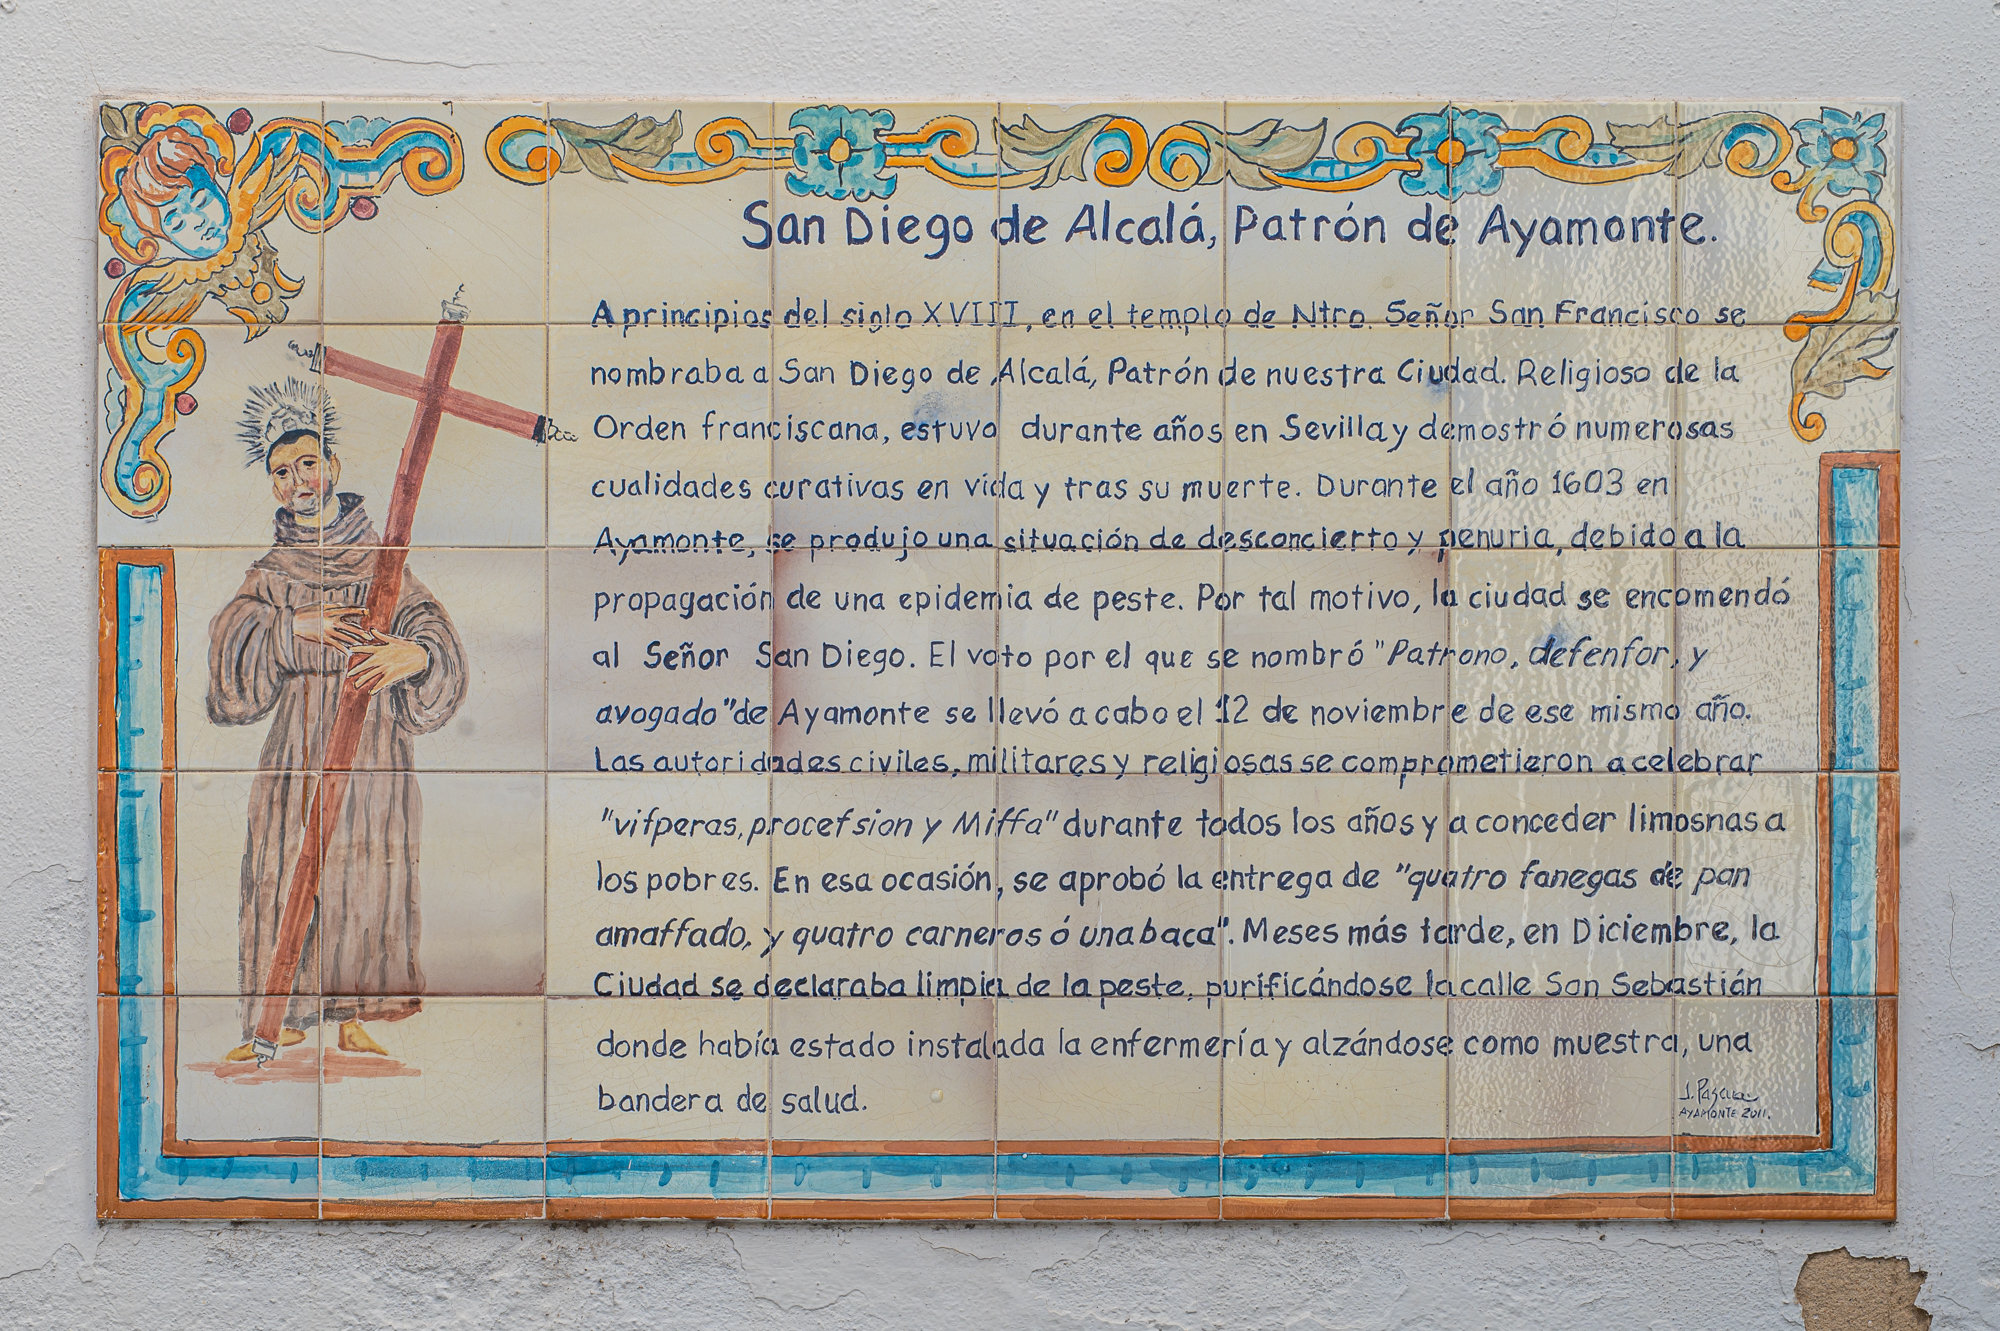 San Diego de Alcalá, Patrón de Ayamonte.
A principios del siglo XVIII, en el templo de Ntro. Señor San Francisco se
nombraba a San Diego de Alcalá, Patrón de nuestra Ciudad. Religioso de la
Orden franciscana, estuvo durante años en Sevilla y demostró numerosas
cualidades curativas en vida y tras su muerte. Durante el año 1603 en
Ayamonte, se produjo una situación de desconcierto y penuria, debido a la
propagación de una epidemia de peste. Por tal motivo, la ciudad se encomendó
al Señor San Diego. El voto por el que se nombró "Patrono, defenfor, y
avogado" de Ayamonte se llevó a cabo el 12 de noviembre de ese mismo año.
Las autoridades civiles, militares y religiosas se comprometieron a celebrar
"vifperas, procefsion y Miffa" durante todos los años y a conceder limosnas a
los pobres. En esa ocasión, se aprobó la entrega de "quatro fanegas de pan
amaffado, y quatro carneros ó una baca". Meses más tarde, en Diciembre, la
Ciudad se declaraba limpia de la peste, purificándose la calle San Sebastián
donde había estado instalada la enfermería y alzándose como muestra, una
bandera de salud.
J. Pascual
AYAMONTE 2011.